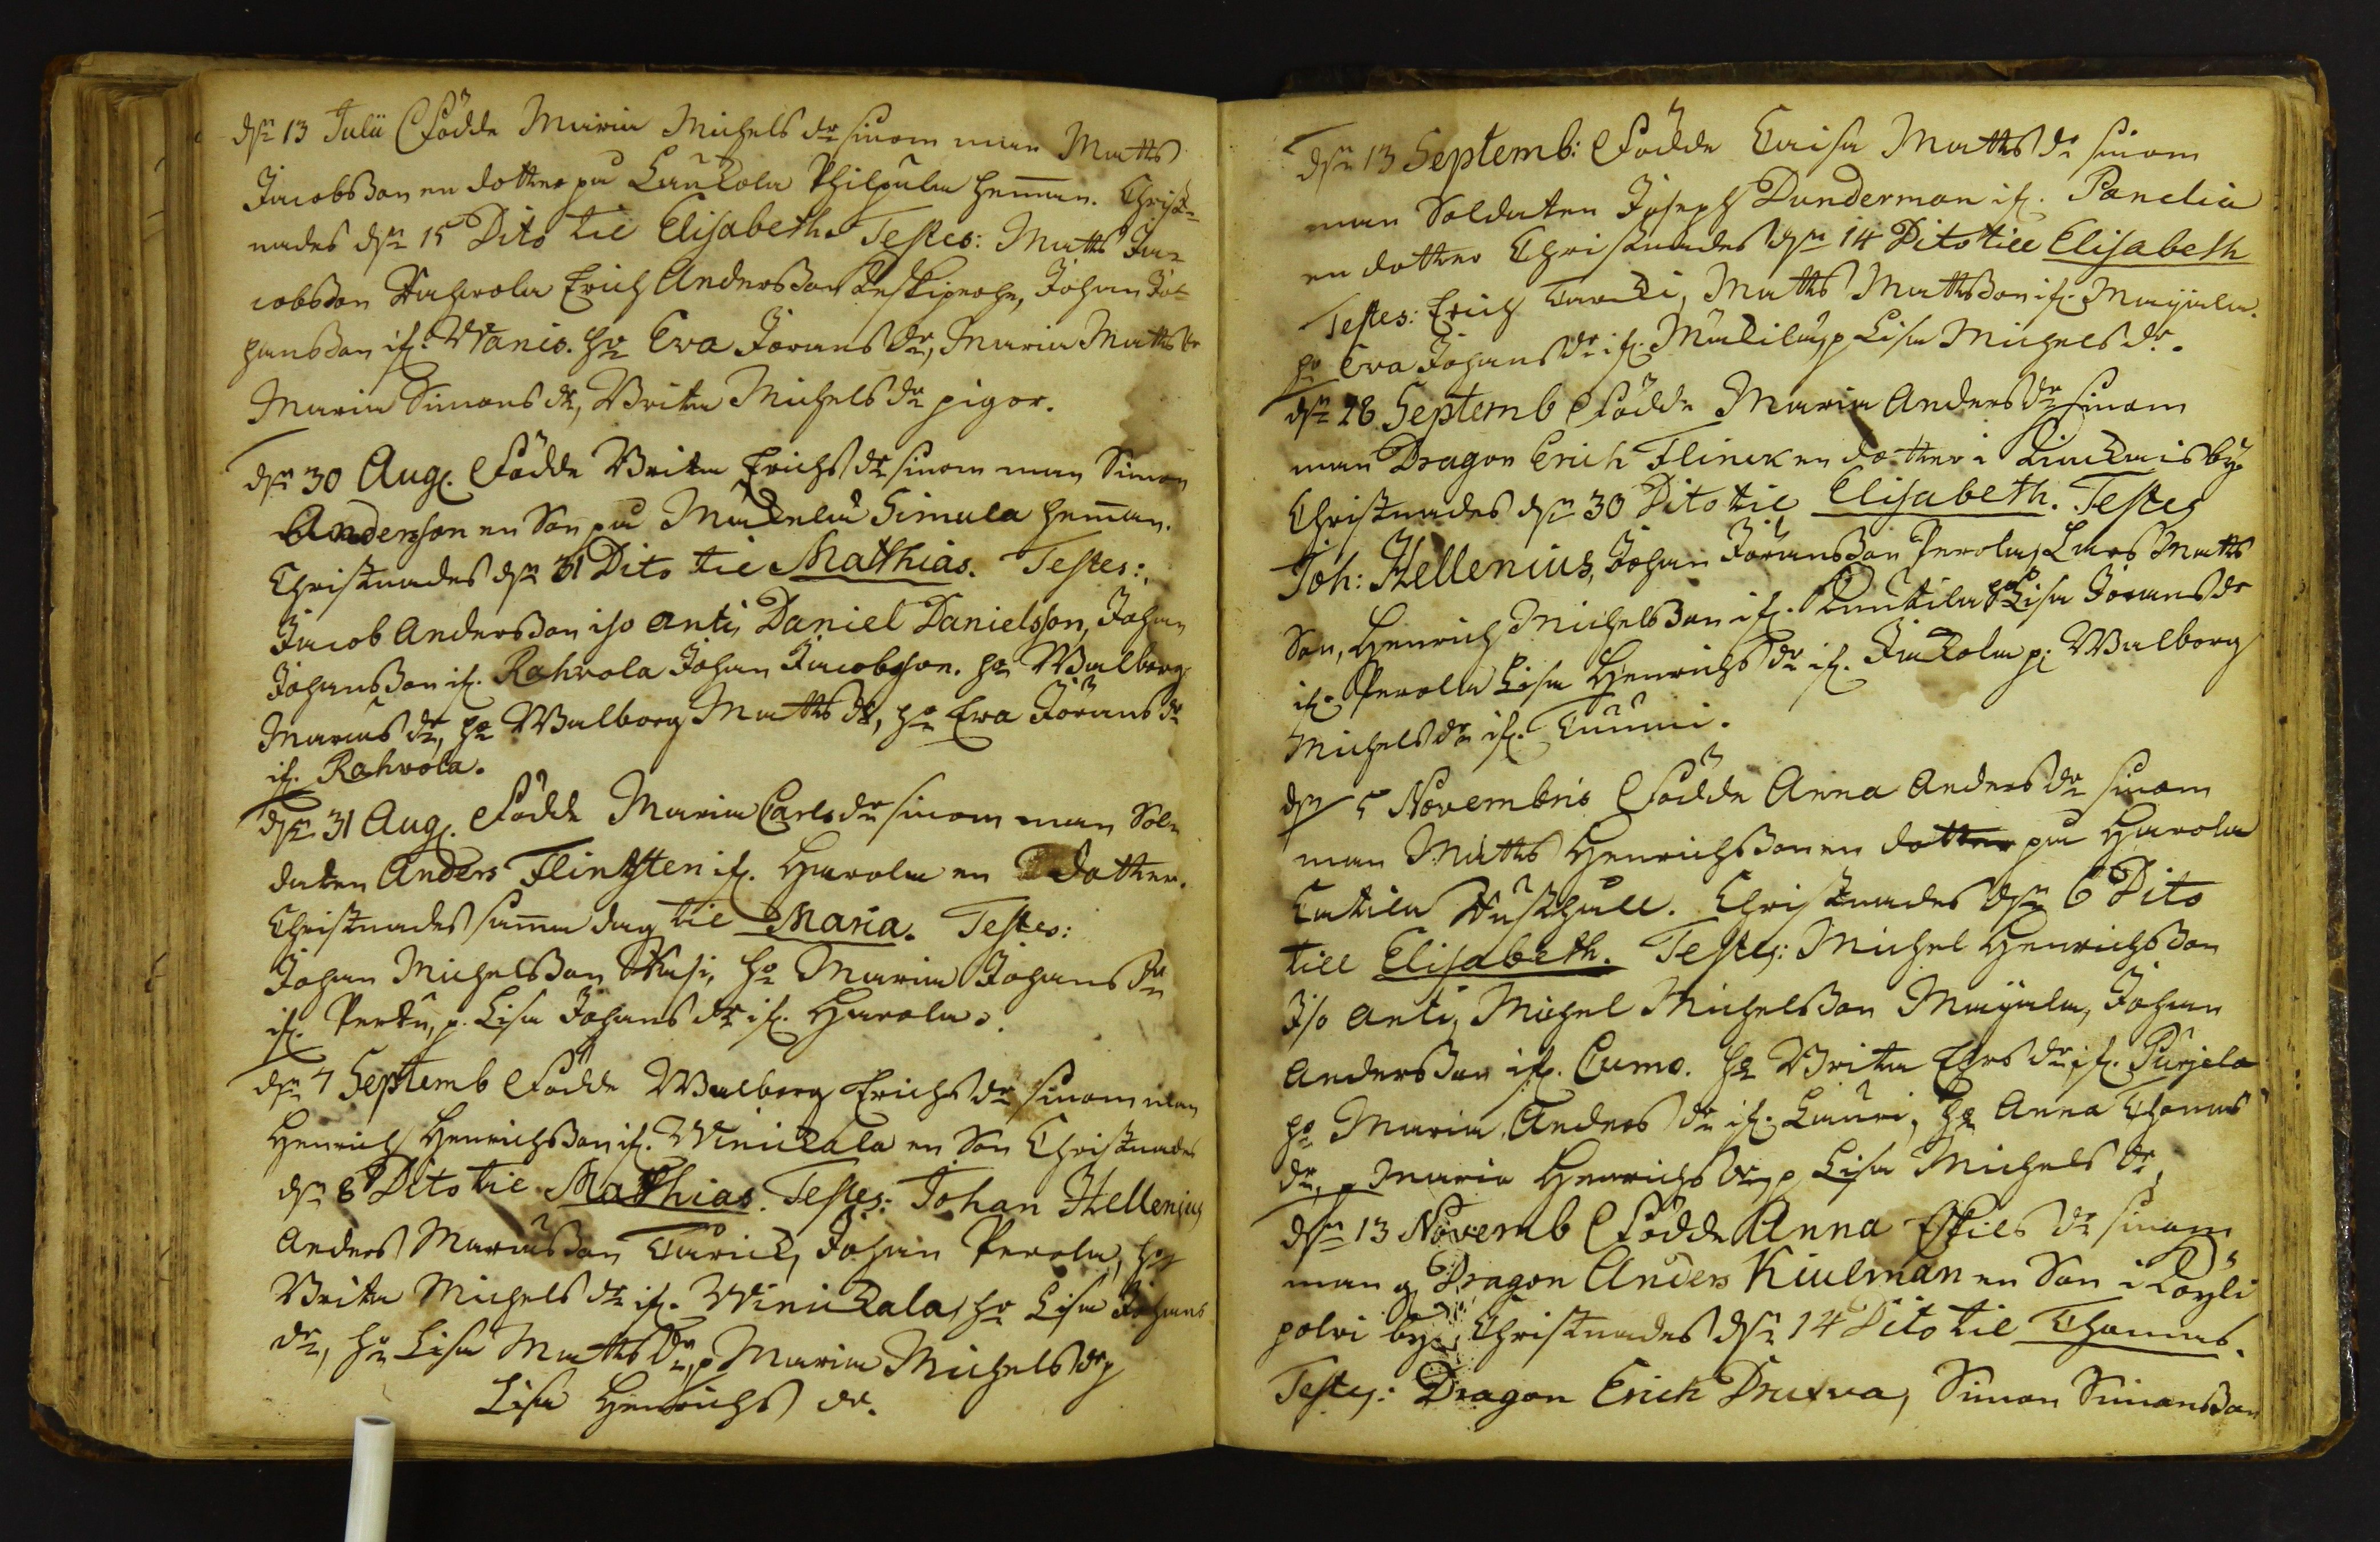 dn 13 Julii Födde Maria Michels dr sinom man Matts
Jacobsson en dotter på Laukola Philpula hemman. Christ-
nades dn 15 Dito til Elisabeth. Testes: Matts Ja-
cobsson Rahvola Erich Andersson Johan Jo-
hansson if. Wanio. h. Eva Jörans dr, Maria Matts dr
Maria Simons dr, Brita Michels dr pigor.
dn 30 Aug. Födde Brita Erichs dr sinom man Simon
Anderson en Son på Mukelu Simula hemman.
Christnades dn 31 Dito til Mathias. Testes:
Jacob Andersson iso anti, Daniel Danielsson, Johan
Johansson if. Rahvola Johan Jacobsson. h. Walborg
Marcus dr, h. Walborg Matts dr, h. Eva Jörans dr
if. Rahvola.
dn 31 Aug. Födde Maria Carls dr sinom man Sol-
daten Anders Flintsten if. Harola en dotter.
Christnades samma dag til Maria. Testes:
Johan Michelsson h. Maria Johans dr
if. Pertu, p. Lisa Johans dr if. Harola.
dn 7 Septemb Födde Walborg Erichs dr sinom man
Henrich Henrichsson if. Winickala en Son Christnades
dn 8 Dito til Mathias. Testes: Johan Hellenius
Anders Marcusson Johan Perola, h.
Brita Michels dr if. Winickala, h. Lisa Johans
dr, h. Lisa Matts dr, p Maria Michels dr p
Lisa Henrichs dr.
dn 13 Septemb: Födde Caisa Matts dr sinom
man Soldaten Joseph Dunderman if. Panelia
en dotter Christnades dn 14 Dito till Elisabeth
Testes: Erich Matts Mattsson if. Mayiala.
h. Eva Johans dr if. Mukilu, p Lisa Michels dr.
dn 28 Septemb Födde Maria Anders dr sinom
man Dragon Erich Flinck en dotter i Kiuckais by.
Christnades dn 30 Dito til Elisabeth. Testes
Joh: Hellenius, Johan Jöransson Perola, Lars Matts
Son, Henrich Michelsson if. h. Lisa Jörans dr
if. Perola Lisa Henrichs dr if. Jackola p. Walborg
Michels dr if. Tuumi.
dn 5 Novembris Födde Anna Anders dr sinom
man Matts Henrichsson en dotter på Harola
Catila Rusthåll. Christnades dn 6 Dito
till Elisabeth. Testes: Michel Henrichsson
Iso anti, Michel Michelsson Mayiala, Johan
Andersson if. Cumo. h. Brita Ehrs dr if. Purjela
h. Maria Anders dr if. Lauri, h. Anna Thomas
dr, p Maria Henrichs dr, p Lisa Michels dr,
dn 13 Novemb Födde Anna Eskils dr sinom
man g Dragon Anders Kiulman en Son i Köyli
polvi by. Christnades dn 14 Dito til Thomas.
Testes: Dragon Erich Drufva, Simon Simonsson